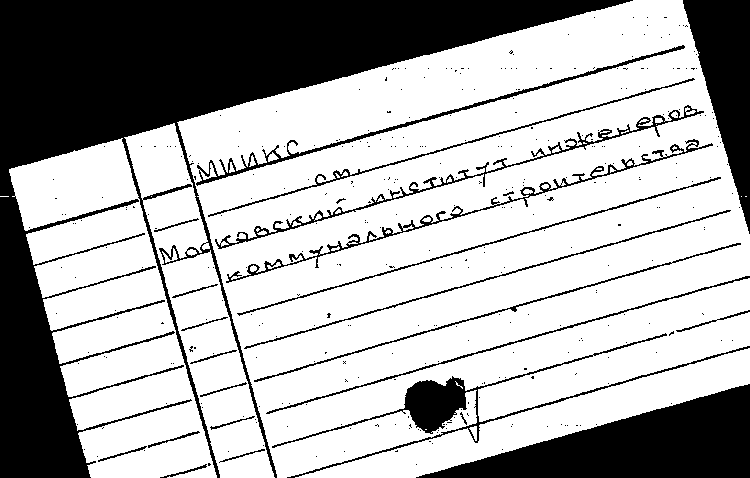 МИИКС
см.
Московский институт инженеров
коммунального строительства